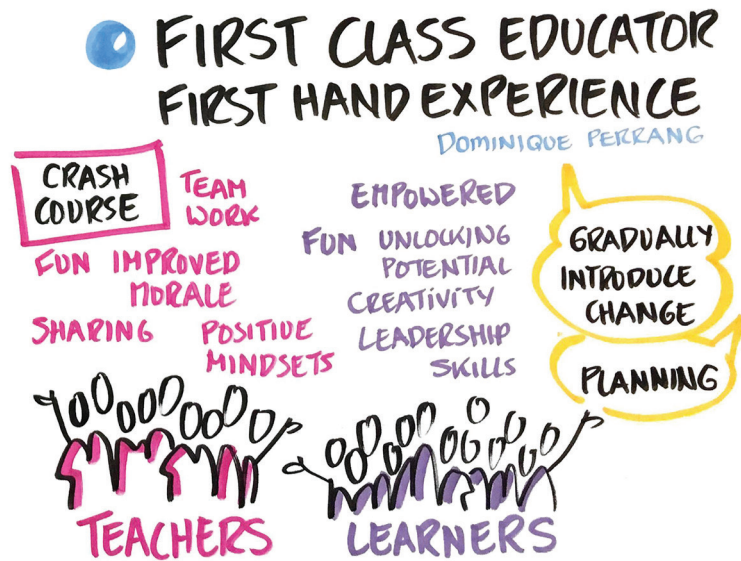 FIRST CLASS EDUCATOR
FIRST HAND EXPERIENCE
DOMINIQUE PERRANG
CRASH
COURSE
TEAM
WORK
FUN IMPROVED
MORALE
SHARING
POSITIVE
MINDSETS
TEACHERS
EMPOWERED
FUN UNLOCKING
POTENTIAL
CREATIVITY
LEADERSHIP
SKILLS
LEARNERS
GRADUALLY
INTRODUCE
CHANGE
PLANNING